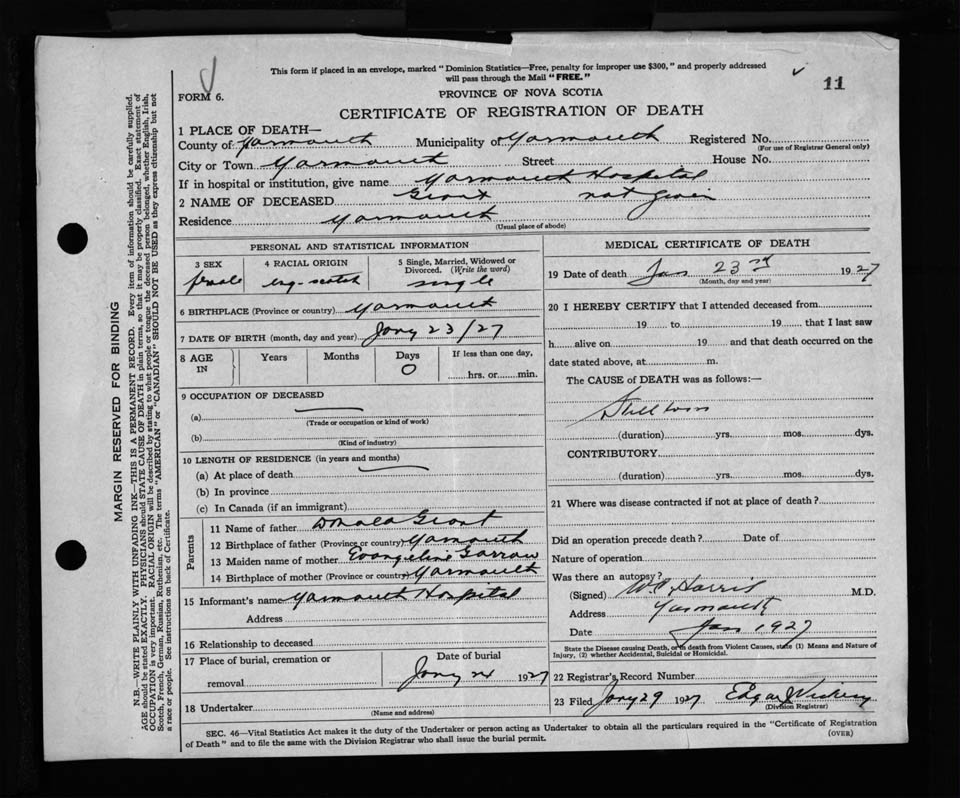 This form if placed in an envelope, marked "Dominion Statistics—Free, penalty for improper use $300," and properly addressed
will pass through the Mail "FREE."
11
FORM 6.
PROVINCE OF NOVA SCOTIA
CERTIFICATE OF REGISTRATION OF DEATH
1 PLACE OF DEATH—
County of Yarmouth Municipality of Yarmouth Registered No.
(For use of Registrar General only)
City or Town Yarmouth Street House No.
If in hospital or institution, give name Yarmouth Hospital
2 NAME OF DECEASED Grant not given
Residence Yarmouth
(Usual place of abode)
PERSONAL AND STATISTICAL INFORMATION
3 SEX 4 RACIAL ORIGIN 5 Single, Married, Widowed or
Divorced. (Write the word)
female eng-scotch single
6 BIRTHPLACE (Province or country) Yarmouth
7 DATE OF BIRTH (month, day and year) Jany 23/27
8 AGE IN Years Months Days If less than one day,
0 hrs. or min.
9 OCCUPATION OF DECEASED
(a)
(Trade or occupation or kind of work)
(b)
(Kind of industry)
10 LENGTH OF RESIDENCE (in years and months)
(a) At place of death
(b) In province
(c) In Canada (if an immigrant)
Parents
11 Name of father Donald Grant
12 Birthplace of father (Province or country) Yarmouth
13 Maiden name of mother Evangeline
14 Birthplace of mother (Province or country) Yarmouth
15 Informant's name Yarmouth Hospital
Address
16 Relationship to deceased
17 Place of burial, cremation or Date of burial
removal Jany 24 1927
18 Undertaker
(Name and address)
MEDICAL CERTIFICATE OF DEATH
19 Date of death Jan 23rd 1927
(Month, day and year)
20 I HEREBY CERTIFY that I attended deceased from
19 to 19 that I last saw
h alive on 19 and that death occurred on the
date stated above, at m.
The CAUSE of DEATH was as follows:—
Stillborn
(duration) yrs. mos. dys.
CONTRIBUTORY
(duration) yrs. mos. dys.
21 Where was disease contracted if not at place of death?
Did an operation precede death? Date of
Nature of operation
Was there an autopsy?
(Signed) Harris M.D.
Address Yarmouth
Date Jan 1927
State the Disease causing Death, or in death from Violent Causes, state (1) Means and Nature of
Injury, (2) whether Accidental, Suicidal or Homicidal.
22 Registrar's Record Number
23 Filed Jany 29 1927 Edgar
(Division Registrar)
SEC. 46—Vital Statistics Act makes it the duty of the Undertaker or person acting as Undertaker to obtain all the particulars required in the "Certificate of Registration
of Death" and to file the same with the Division Registrar who shall issue the burial permit.
(OVER)
MARGIN RESERVED FOR BINDING
N.B.—WRITE PLAINLY WITH UNFADING INK—THIS IS A PERMANENT RECORD. Every item of information should be carefully supplied.
AGE should be stated EXACTLY. PHYSICIANS should STATE CAUSE OF DEATH in plain terms, so that it may be properly classified. Exact statement of
OCCUPATION is very important. RACIAL ORIGIN will be described by stating to what people or tongue the deceased person belonged, whether English, Irish,
Scotch, French, German, Russian, Ruthenian, etc. The terms "AMERICAN" or "CANADIAN" SHOULD NOT BE USED as they express citizenship but not
a race or people. See instructions on back of Certificate.